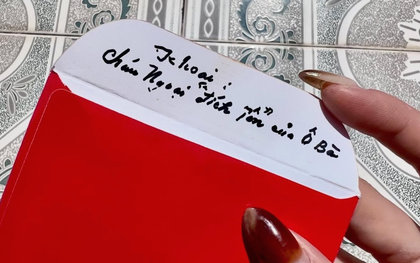 Jckoai
cháu Ngoại đích tôn của Ô Bà